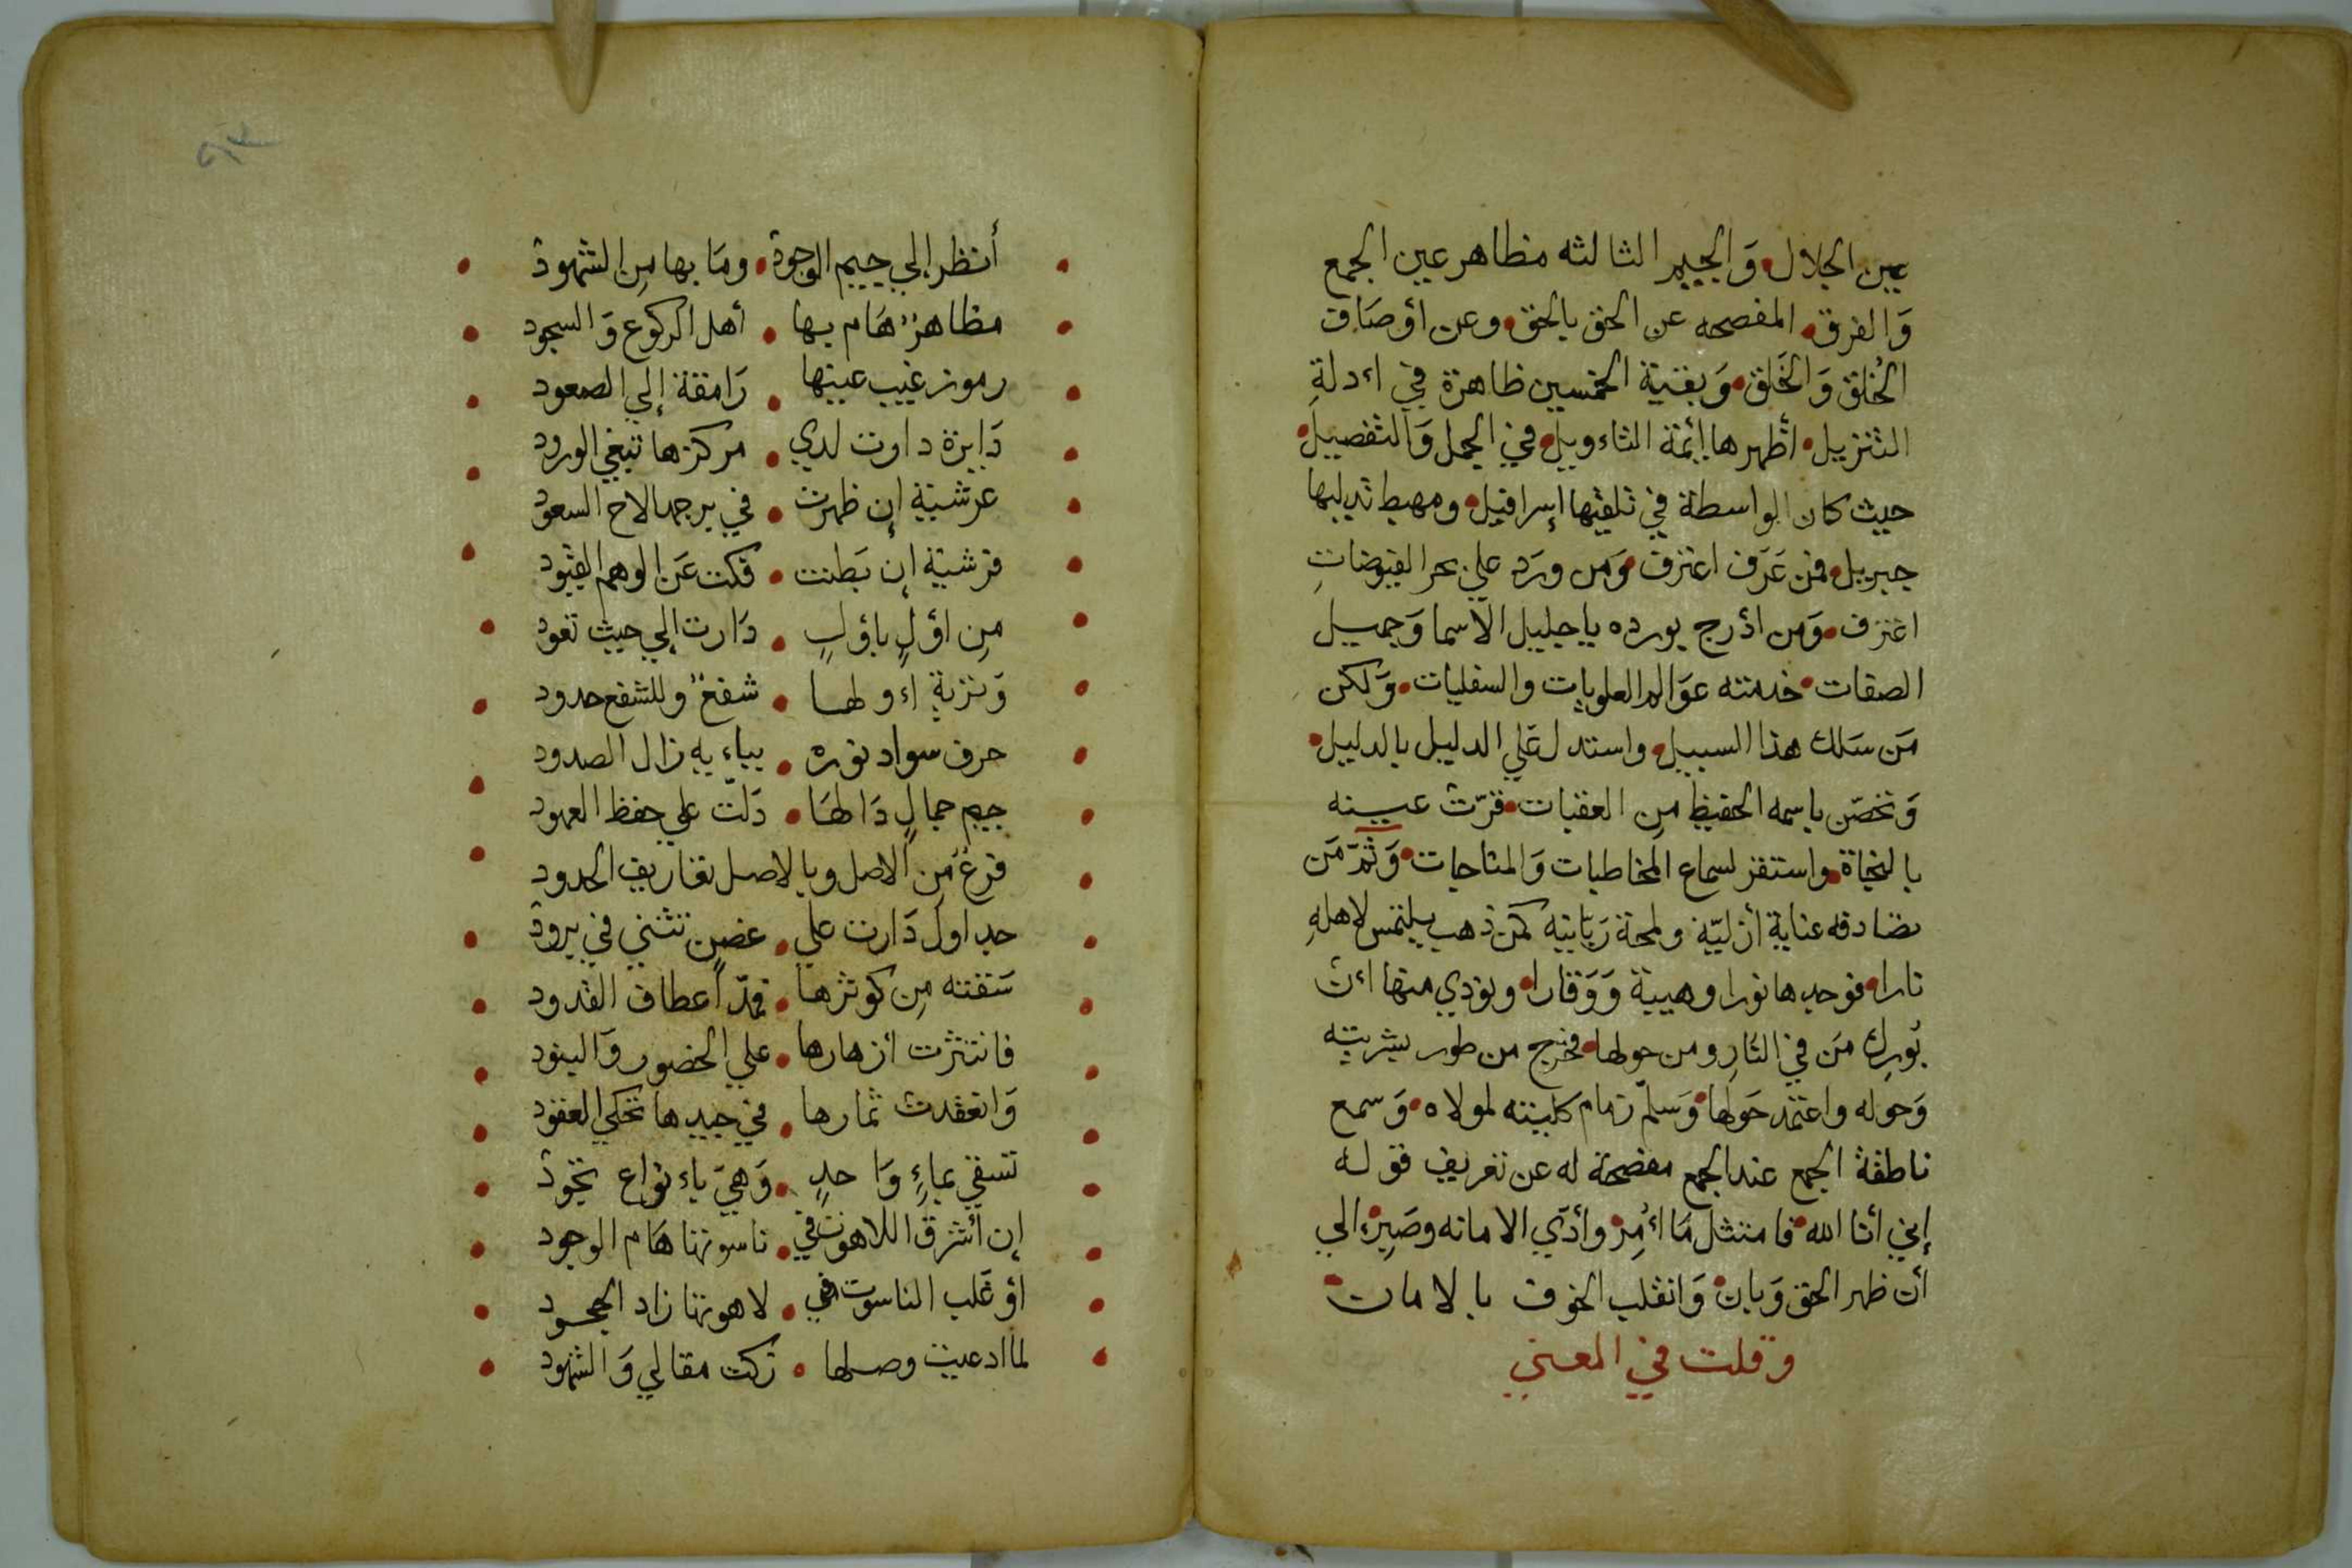 عين الجلال والجيم الثالثه مظاهر عين الجمع
وَالفرق المفصحه عن الحق بالحق وعن أوصَاف
الخُلق وَالخَلق وَبقية الخمسين ظاهرة في ادلةِ
التنزيل أظهرها أئمة التاءويل في الجمل وَالتفصيل
حيث كان الواسطة في تلقيها إسرافيل ومهبط تدليها
جبريل فمن عَرَف اعترف وَمن ورَد علي بحر الفيوضاتِ
اغترف وَمن أدرج بورده يا جليل الاسما وَجميل
الصفات خدمته عوَالم العلويات والسفليات وَلكن
مَن سَلك هذا السبيل واستدل عَلي الدليل بالدليل
وَتحصّن باسمه الحفيظ مِن العقبات قرّت عينه
بالنجاة واستقر لسماع المخاطبات وَالمناجات وَثمّ مَن
تصادفه عناية أزليّة ولمحة رَبانية كمن ذهب يلتمس لاهلهِ
نارا فوجدها نورا وهيبة وَوَقارا ونودي منها اءن
بُورِك مَن في النّارِ ومن حولها فخرج من طور بشريته
وَحوله واعتمد حَولها وَسلّم زمام كليته لمولاه وَسمع
ناطقة الجمع عند الجمع مفصحة له عن تعريف قوله
إني أنا الله فامتثل مَا اُمِرْ وأدّي الامانه وصَبِرْ الي
أن ظهر الحق وَبان وَانقلب الخوف بالامان
وقلت في المعني
أنظر إلي جيم الوجود وما بها مِن الشهود
مظاهرٌ هَام بها أهل الركوع وَالسجود
رموز غيب عينها رَامقة إلي الصعود
دَايرة دارت لدي مركزها تبغي الورود
عرشية إن ظهرت في برجها لاح السعود
فرشية إن بَطنت فكت عَن الوهم القيود
مِن اوّلٍ باوّلٍ دَارت إلي حيث تعود
وَترية اءولها شفعٌ وللشفع حدود
حرف سواد نوره بباءٍ به زال الصدود
جيم جمالٍ دَالها دَلّت علي حفظ العهود
فرعٌ مِن الاصل وبالاصل تعاريف الحدود
جداول دَارت علي غصنٍ تثني في برود
سَقته مِن كوثرها فمدّ أعطاف القدود
فانتثرت أزهارها علي الحضور وَالبنود
وَانعقدت ثمارها في جيدها تحكي العقود
تسقي بماءٍ وَاحدٍ وَهي باءنواع تجود
إن أشرق اللاهوت في ناسوتنا هَام الوجود
أو غَلب الناسوت في لاهوتنا زاد الجحود
لما ادعيت وصلها زكت مقالي وَالشهود